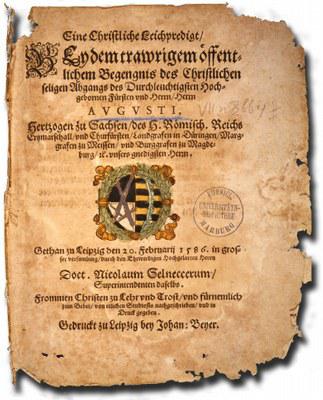 Eine Christliche Leichpredigt/
BEydem trawrigem öffent-
lichem Begengnis des Christlichen
seligen Abgangs des Durchleuchtigsten Hoch-
gebornen Fürsten und Herrn/ Herrn
AVGVSTI,
Hertzogen zu Sachsen/ des H. Römisch. Reichs
Ertzmarschall/ und Churfürsten/ Landgrafen in Düringen/ Marg-
grafen zu Meissen/ und Burggrafen zu Magde-
burg/ etc. unsers gnedigsten Herrn.
KÖNIGL.
UNIVERSITÄTS-
BIBLIOTHEK
MARBURG
Gethan zu Leipzig den 20. Februarij 1586. in gros-
ser versamlung/ durch den Ehrwirdigen Hochgelarten Herrn
Doct. Nicolaum Selneccerum/
Superintendenten daselbs.
Frommen Christen zu Lehr und Trost/ und fürnemlich
zum Gebet/ von etlichen Studiosis nachgeschrieben/ und in
Druck gegeben.
Gedruckt zu Leipzig bey Johan: Beyer.